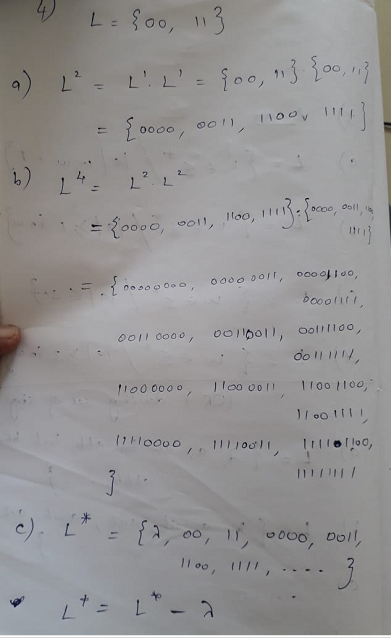 4) L = {00, 11}
a) L² = L¹. L¹ = {00, 11}. {00, 11}
= {0000, 0011, 1100, 1111}
b) L⁴ = L². L²
= {0000, 0011, 1100, 1111}. {0000, 0011,
1111}
= {00000000, 00000011, 00001100,
00001111,
00110000, 00110011, 00111100,
00111111,
11000000, 11000011, 11001100,
11001111,
11110000, 11110011, 11111100,
11111111
}
c). L* = {λ, 00, 11, 0000, 0011,
1100, 1111, ..... }
L⁺ = L* - λ